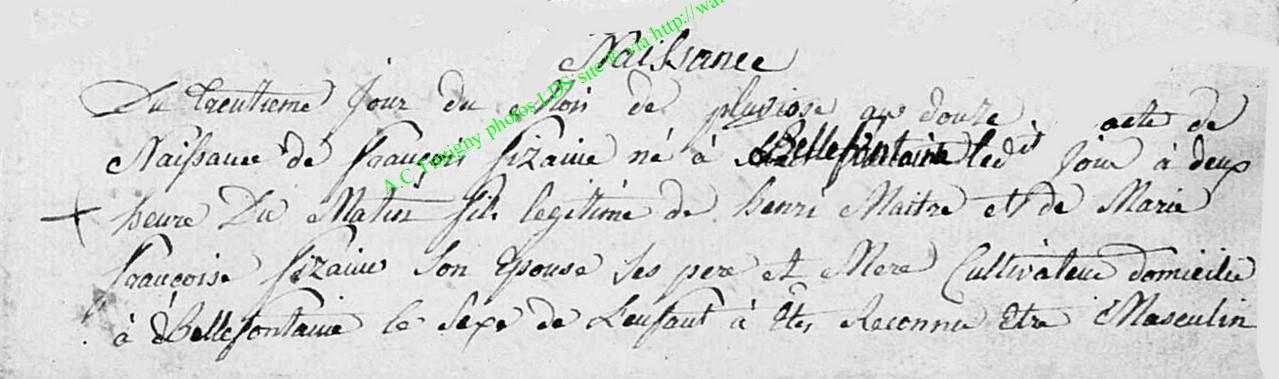 Naissance
Du trentieme jour du Mois de pluviose an douze acte de
Naissance de françois fizaine né à Bellefontaine led it jour à deux
heure Du Matin fils legitime de henri Maitre et de Marie
françoise fizaine Son Epouse Ses pere et Mere Cultivateur domicilie
à Bellefontaine le Sexe de L'enfant à Reconnu Etre Masculin
A.C Tintigny photos LDS site g. via http://wa